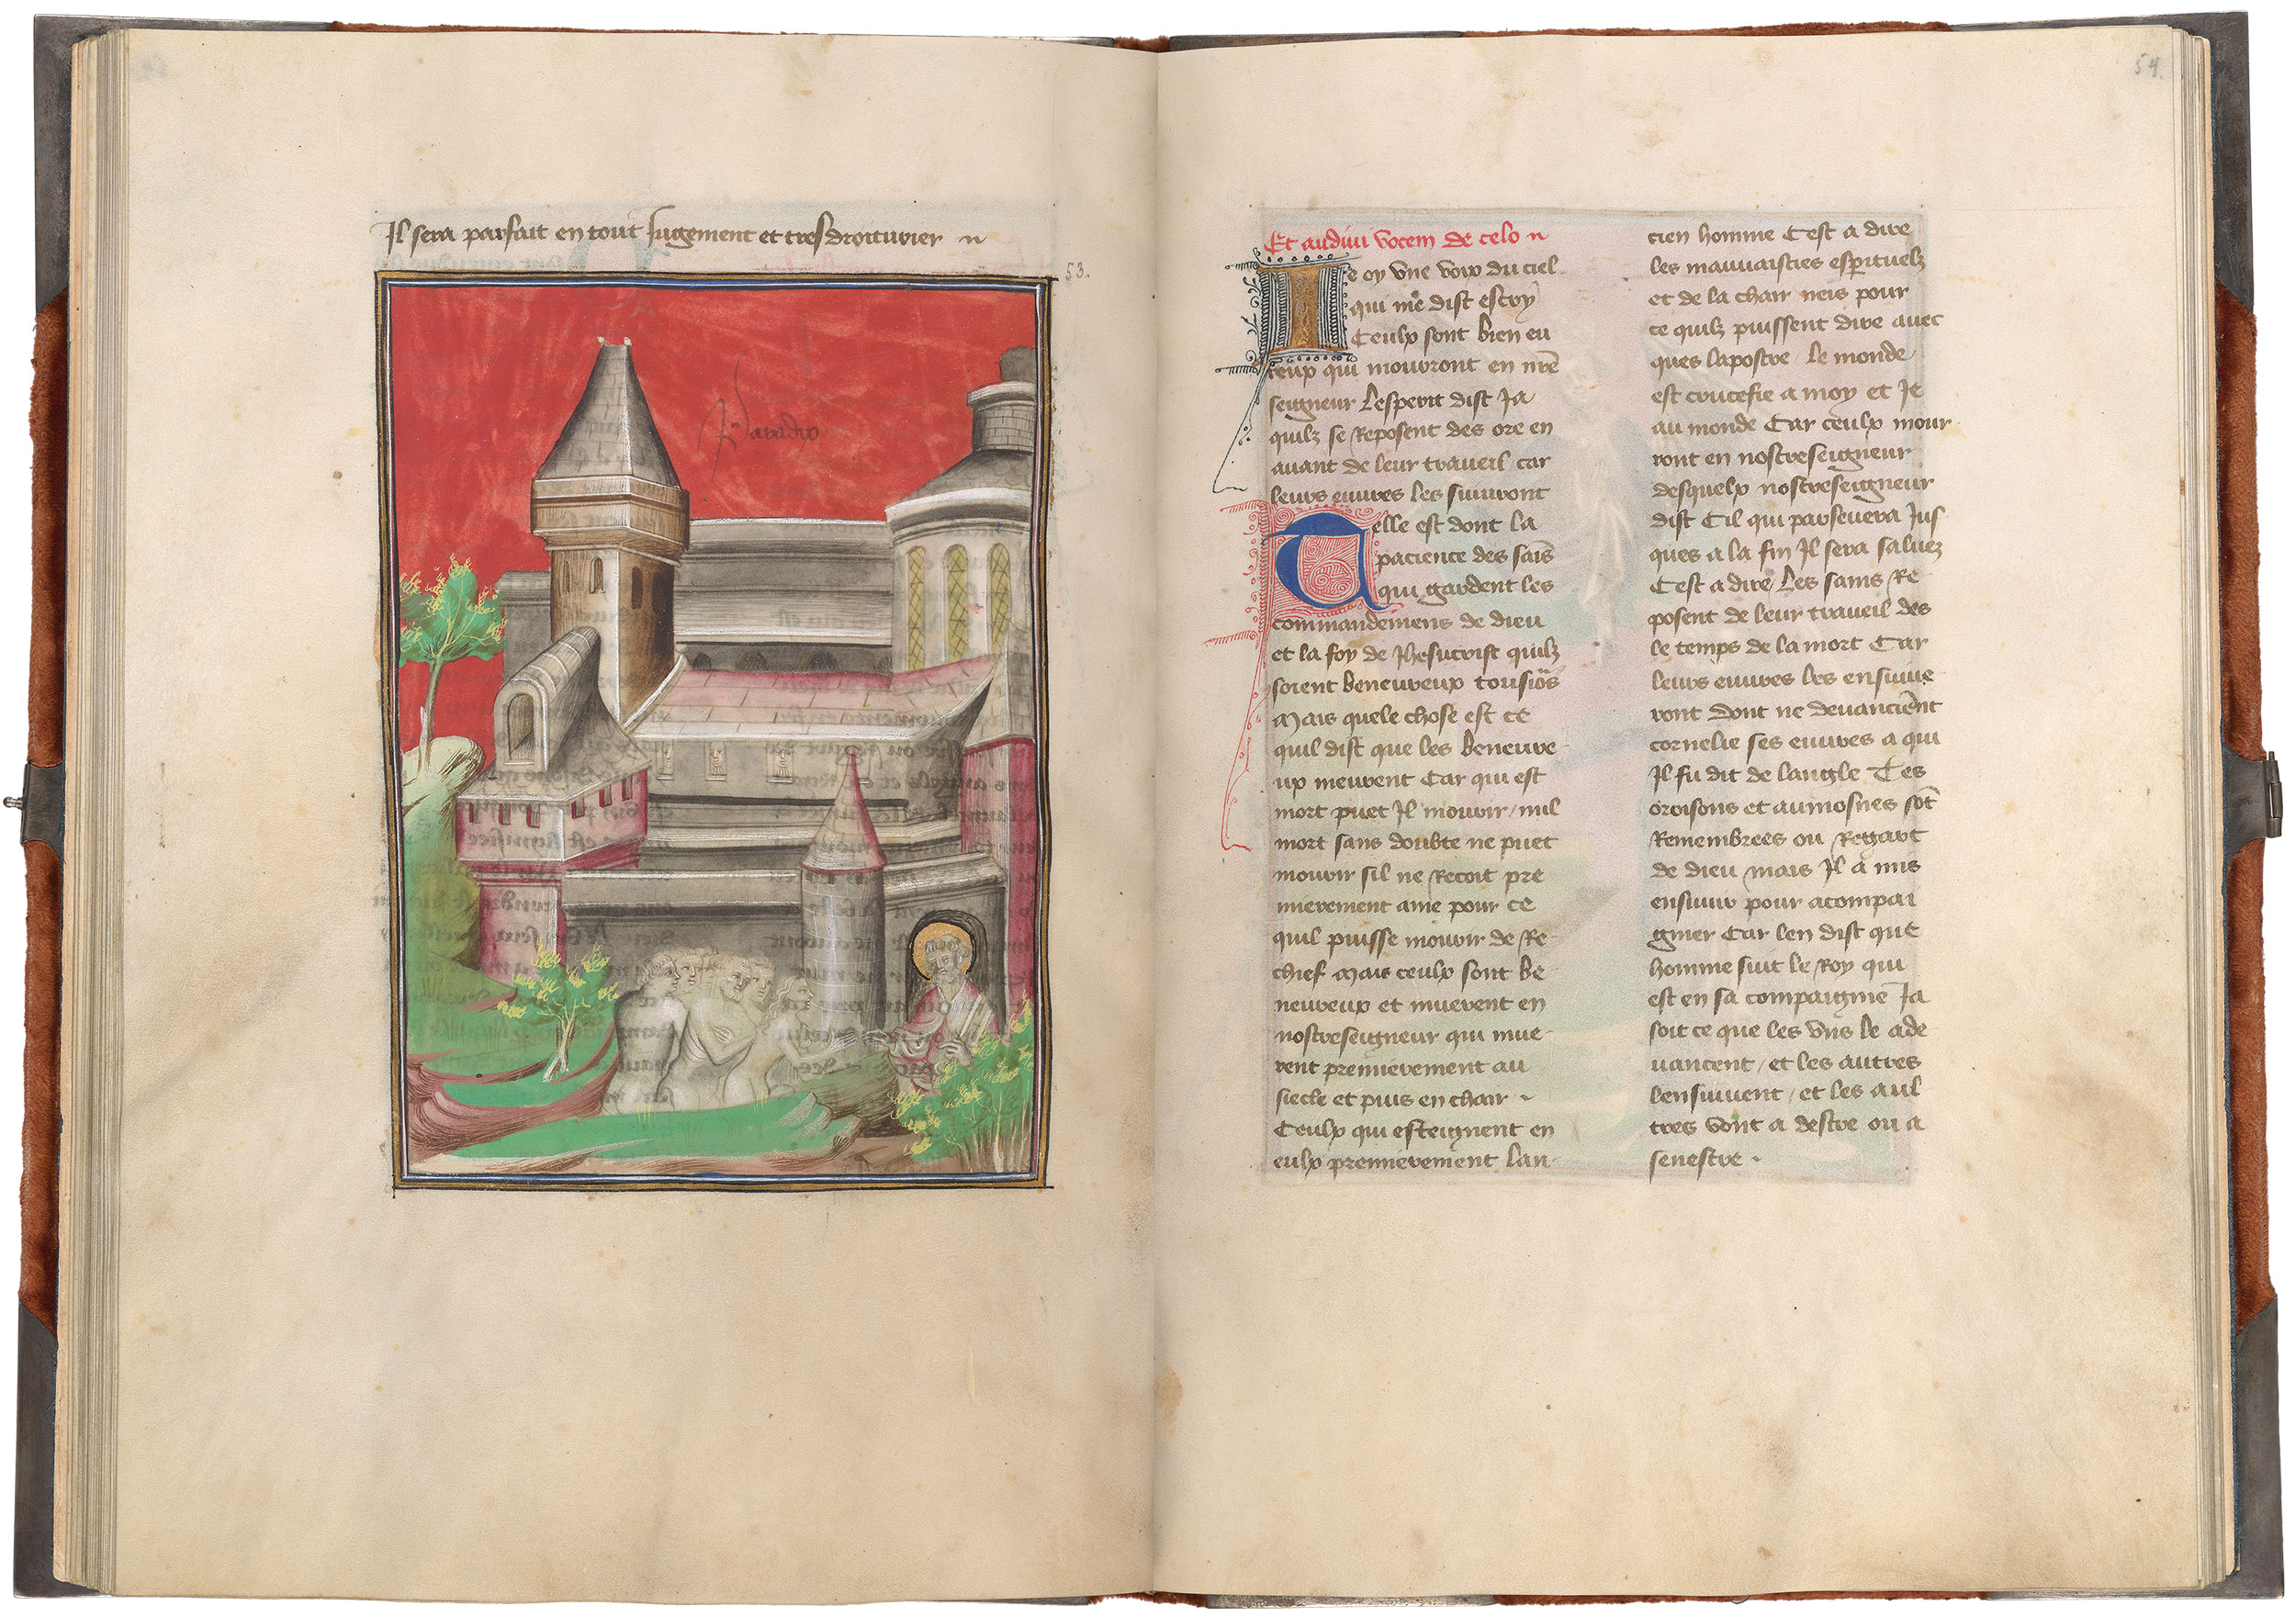 Il sera parfait en tout Jugement et tresdroiturier
53.
Paradix
54.
Et audiui vocem de celo
Ie oy vne voix du ciel
qui me dist escry
Ceulx sont bien eu
reux qui mourront en nr̃e
seigneur Lesperit dist Ja
quilz se Reposent des ore en
auant de leur traueil car
leurs euures les suiuront
Celle est dont la
pacience des sais̃
qui gardent les
commandemens de dieu
et la foy de Jhesucrist quilz
soient beneureux tousio's
Mais quele chose est ce
quil dist que les beneure
ux meurent Car qui est
mort puet Il mourir / nul
mort sans doubte ne puet
mourir sil ne Recoit pre
mierement ame pour ce
quil puisse mourir de Re
chief Mais ceulx sont be
neureux et muerent en
nostreseigneur qui mue
rent premierement au
siecle et puis en chair
Ceulx qui esteignent en
eulx premierement lan
cien homme Cest a dire
les mauuaisties esperituelz
et de la chair neis pour
ce quilz puissent dire auec
ques lapostre / le monde
est crucefie a moy et Je
au monde Car ceulx mour
ront en nostreseigneur
desquelx nostreseigneur
dist Cil qui perseuera Jus
ques a la fin Il sera saluez
Cest a dire Les sains Re
posent de leur traueil des
le temps de la mort Car
leurs euures les ensuiue
ront dont ne deuanciẽnt
cornelie ses euures a qui
Il fu dit de langle Tes
oroisons et aumosnes sõt
Remembrees ou Regart
de dieu mais Il a mis
ensuiuir pour acompai
gnier Car len dist que
homme suit le Roy qui
est en sa compaignie Ja
soit ce que les vns le ade
uancent / et les autres
lensuiuent / et les aul
tres vont a destre ou a
senestre